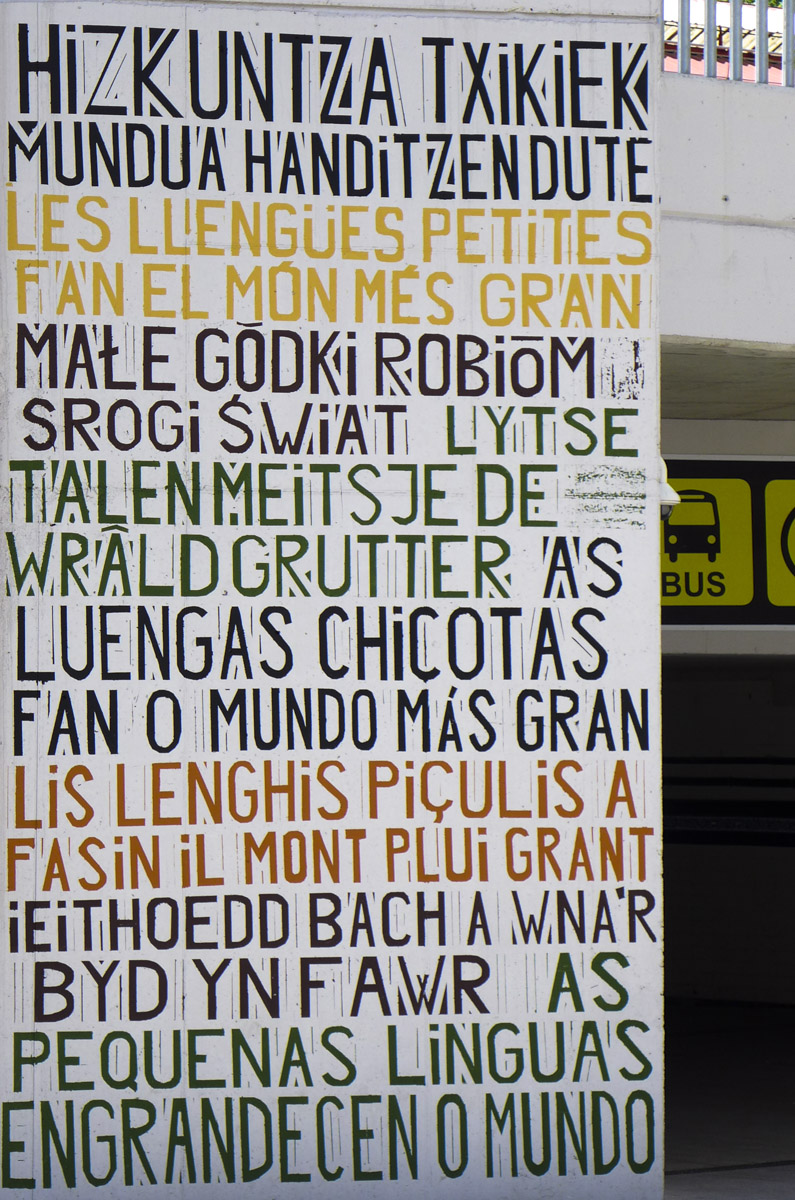 HiZKUNTZA TXiKiEK
MUNDUA HANDiTZEN DUTE
LES LLENGÜES PETiTES
FAN EL MÓN MÉS GRAN
MAŁE GŎDKi ROBiŌM
SROGi ŚWiAT LYTSE
TALEN MEiTSJE DE
WRÂLD GRUTTER AS
LUENGAS CHiCOTAS
FAN O MUNDO MÁS GRAN
LiS LENGHiS PiÇULiS A
FASiN iL MONT PLUi GRANT
iEiTHOEDD BACH A WNA'R
BYD YN FAWR AS
PEQUENAS LiNGUAS
ENGRANDECEN O MUNDO
BUS